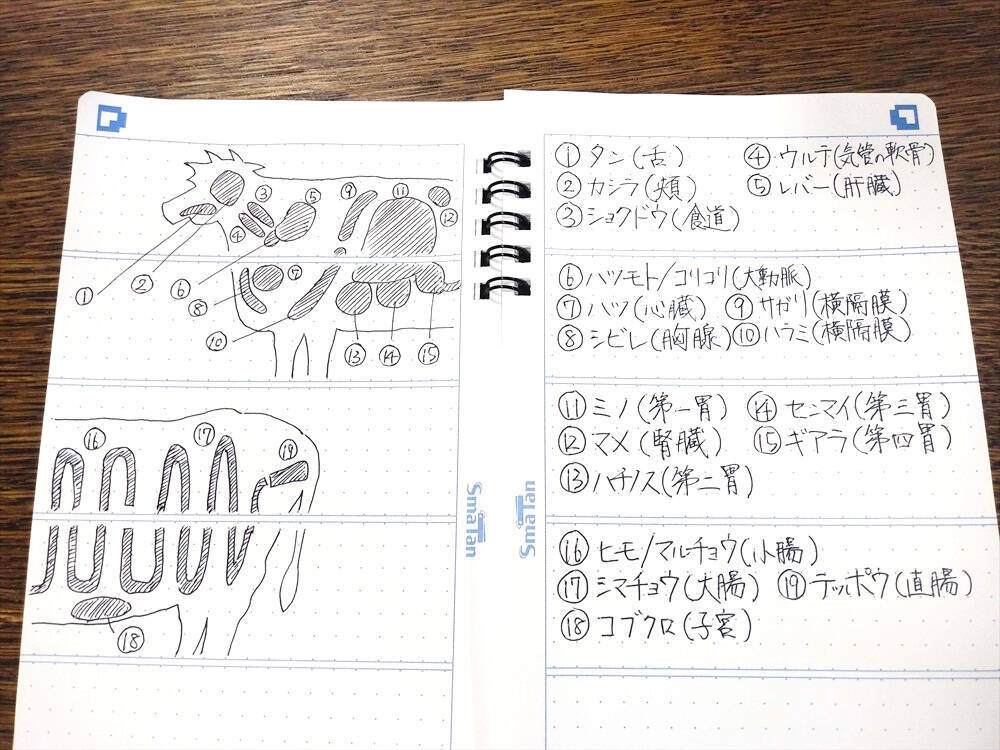 ③
⑤
⑨
⑪
⑫
④
①
②
⑥
⑦
⑧
⑩
⑬
⑭
⑮
⑯
⑰
⑲
⑱
SmaTan
SmaTan
① タン(舌) ④ ウルテ(気管の軟骨)
② カシラ(頬) ⑤ レバー(肝臓)
③ ショクドウ(食道)
⑥ ハツモト/コリコリ(大動脈)
⑦ ハツ(心臓) ⑨ サガリ(横隔膜)
⑧ シビレ(胸腺) ⑩ ハラミ(横隔膜)
⑪ ミノ(第一胃) ⑭ センマイ(第三胃)
⑫ マメ(腎臓) ⑮ ギアラ(第四胃)
⑬ ハチノス(第二胃)
⑯ ヒモ/マルチョウ(小腸)
⑰ シマチョウ(大腸) ⑲ テッポウ(直腸)
⑱ コブクロ(子宮)